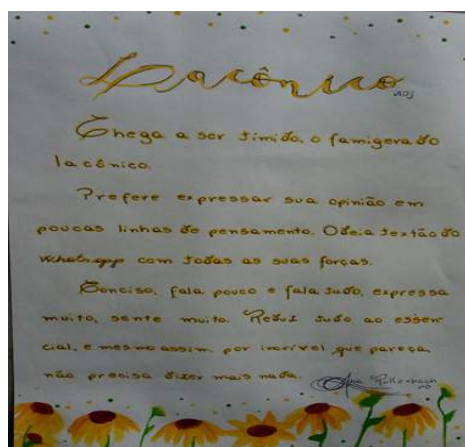 Lacônico ADJ
Chega a ser tímido, o famigerado
lacônico.
Prefere expressar sua opinião em
poucas linhas de pensamento. Odeia textão do
whatsapp com todas as suas forças.
Conciso, fala pouco e fala tudo, expressa
muito, sente muito. Reduz tudo ao essen
cial, e mesmo assim, por incrível que pareça,
não precisa dizer mais nada.